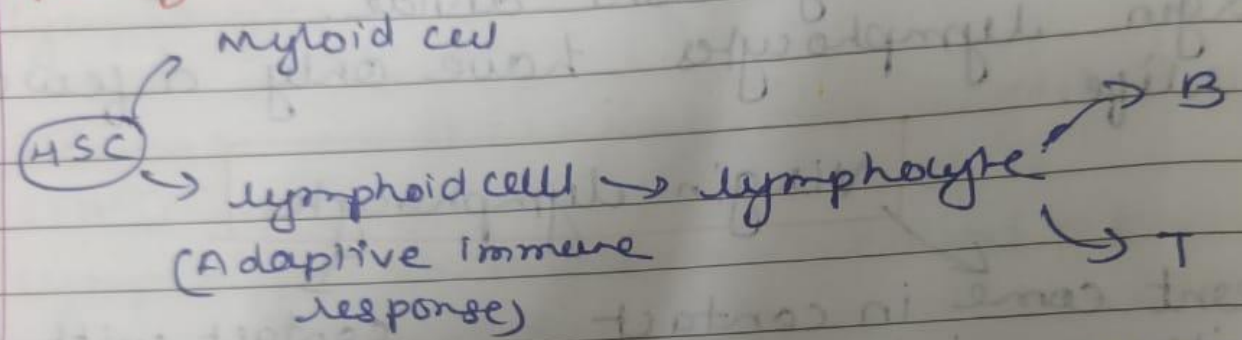 Myloid cell
HSC
lymphoid cell → lymphocyte
B
T
(Adaptive immune
response)